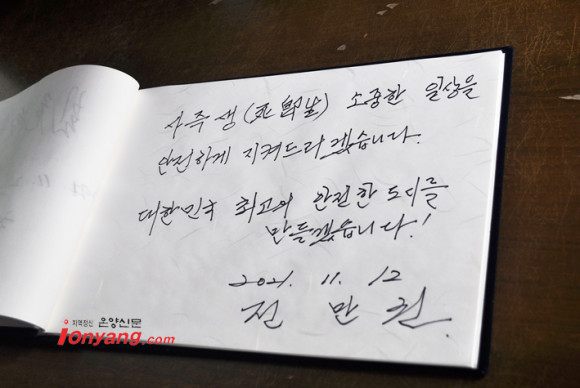 사즉생(死卽生) 소중한 일상을
안전하게 지켜드리겠습니다.
대한민국 최고의 안전한 도시를
만들겠습니다!
2021. 11. 12
전 만 권.
지역정신 온양신문
ionyang.com